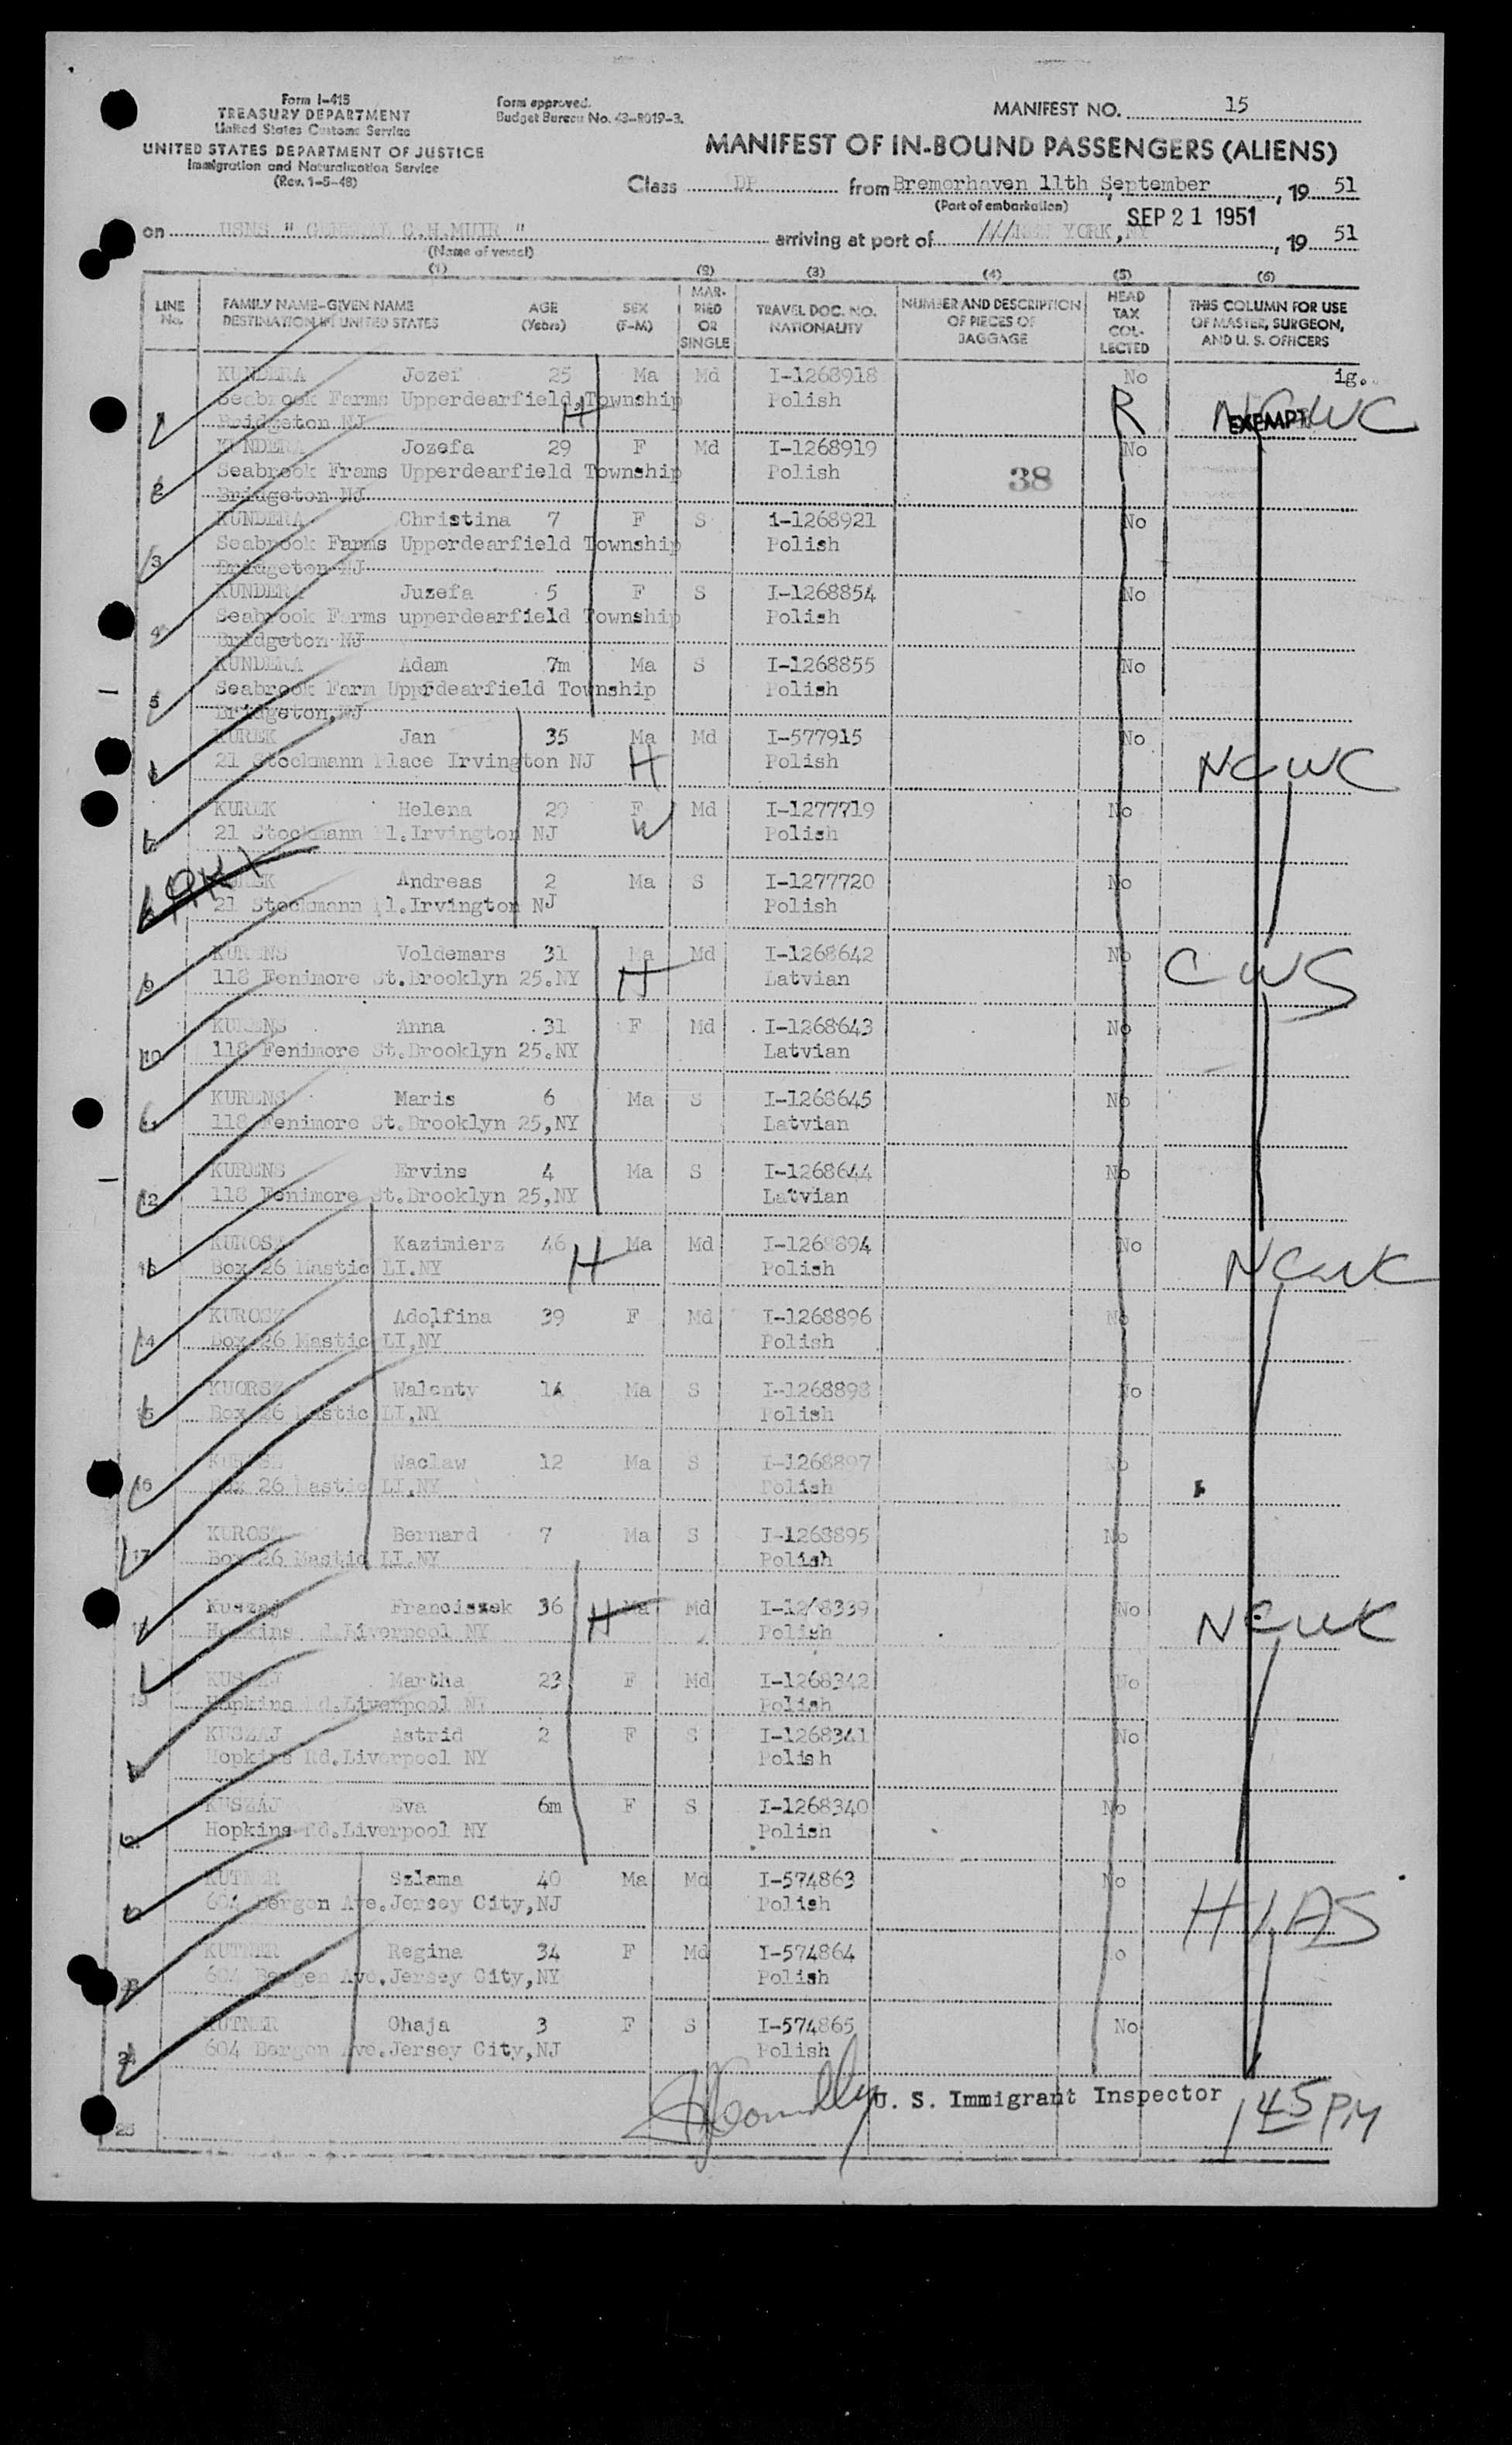 Form I-415
TREASURY DEPARTMENT
United States Customs Service
UNITED STATES DEPARTMENT OF JUSTICE
Immigration and Naturalization Service
(Rev. 1-5-48)
Form approved.
Budget Bureau No. 43-R019-3.
MANIFEST NO. 15
MANIFEST OF IN-BOUND PASSENGERS (ALIENS)
Class DP from Bremerhaven 11th September, 19 51
(Port of embarkation)
on USNS " GENERAL C.H.MUIR " arriving at port of NEW YORK, NY SEP 21 1951, 19 51
(Name of vessel)
(1) (2) (3) (4) (5) (6)
LINE No. FAMILY NAME-GIVEN NAME DESTINATION IN UNITED STATES AGE (Years) SEX (F-M) MARRIED OR SINGLE TRAVEL DOC. NO. NATIONALITY NUMBER AND DESCRIPTION OF PIECES OF BAGGAGE HEAD TAX COLLECTED THIS COLUMN FOR USE OF MASTER, SURGEON, AND U. S. OFFICERS
1 KUNDERA Jozef 25 Ma Md I-1268918 No ig.
Seabrook Farms Upperdearfield, Township Polish R EXEMPT NCWC
Bridgeton NJ H
2 KUNDERA Jozefa 29 F Md I-1268919 No
Seabrook Frams Upperdearfield Township Polish 38
Bridgeton NJ
3 KUNDERA Christina 7 F S i-1268921 No
Seabrook Farms Upperdearfield Township Polish
Bridgeton NJ
4 KUNDERA Juzefa 5 F S I-1268854 No
Seabrook Farms upperdearfield Township Polish
Bridgeton NJ
5 KUNDERA Adam 7m Ma S I-1268855 No
Seabrook Farm Upprdearfield Township Polish
Bridgeton,NJ
KUREK Jan 35 Ma Md I-577915 No
21 Stockmann Place Irvington NJ H Polish NCWC
KUREK Helena 29 F Md I-1277719 No
21 Stockmann Pl.Irvington NJ W Polish
KUREK Andreas 2 Ma S I-1277720 No
21 Stockmann Pl.Irvington NJ Polish
9 KURENS Voldemars 31 Ma Md I-1268642 No
118 Fenimore St.Brooklyn 25.NY H Latvian CWS
10 KURENS Anna 31 F Md I-1268643 No
118 Fenimore St.Brooklyn 25.NY Latvian
KURENS Maris 6 Ma S I-1268645 No
118 Fenimore St.Brooklyn 25,NY Latvian
12 KURENS Ervins 4 Ma S I-1268644 No
118 Fenimore St.Brooklyn 25,NY Latvian
13 KUROSZ Kazimierz 46 Ma Md No
Box 26 Mastic LI.NY H Polish NCWC
14 KUROSZ Adolfina 39 F Md I-1268896 No
Box 26 Mastic LI,NY Polish
15 KUORSZ Walenty 14 Ma S I-1268898 No
Box 26 Mastic LI,NY Polish
16 KUROSZ Waclaw 12 Ma S I-1268897 No
Box 26 Mastic LI,NY Polish
17 KUROSZ Bernard 7 Ma S I-1268895 No
Box 26 Mastic LI.NY Polish
Kuszaj Franciszek 36 H Ma Md No
Hopkins Rd.Liverpool NY Polish NCWC
19 KUSZAJ Martha 23 F Md I-1268342 No
Hopkins Rd.Liverpool NY Polish
KUSZAJ Astrid 2 F S I-1268341 No
Hopkins Rd.Liverpool NY Polish
KUSZAJ Eva 6m F S I-1268340 No
Hopkins Rd.Liverpool NY Polish
KUTNER Szlama 40 Ma Md I-574863 No
604 Bergen Ave.Jersey City,NJ Polish HIAS
KUTNER Regina 34 F Md I-574864 No
604 Bergen Ave.Jersey City,NY Polish
24 KUTNER Chaja 3 F S I-574865 No
604 Bergen Ave.Jersey City,NJ Polish
U. S. Immigrant Inspector 145 PM
25